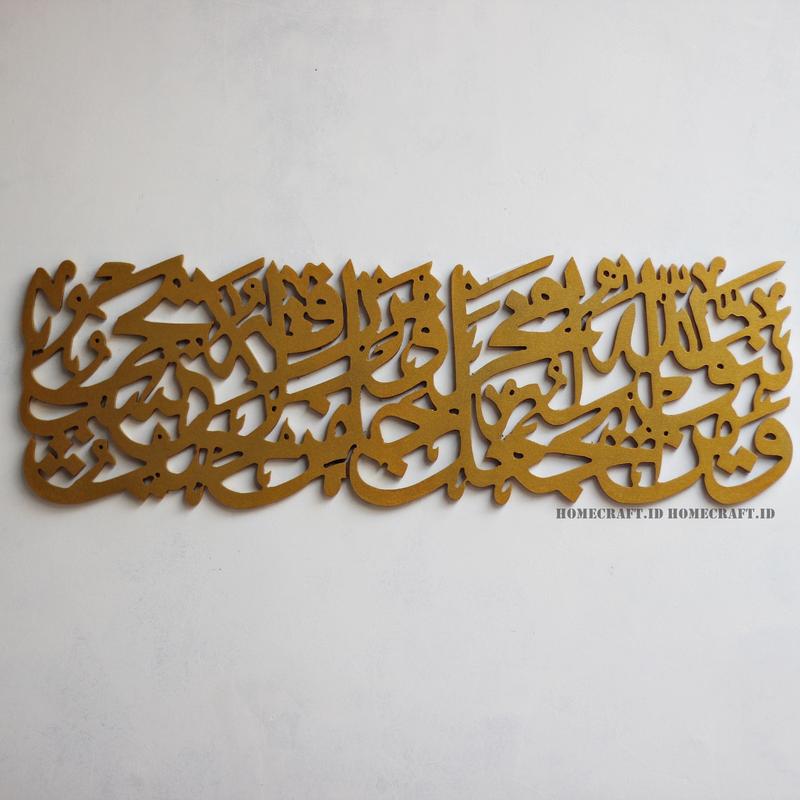 وَمَن يَتَّقِ اللَّهَ يَجْعَل لَّهُ مَخْرَجًا
وَيَرْزُقْهُ مِنْ حَيْثُ لَا يَحْتَسِبُ
HOMECRAFT.ID HOMECRAFT.ID